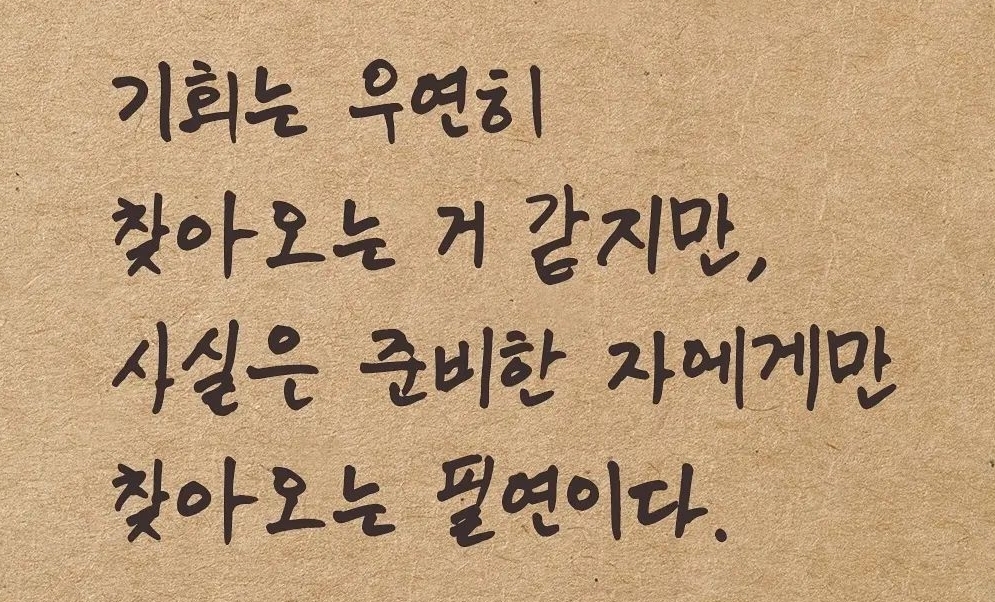 기회는 우연히
찾아오는 거 같지만,
사실은 준비한 자에게만
찾아오는 필연이다.